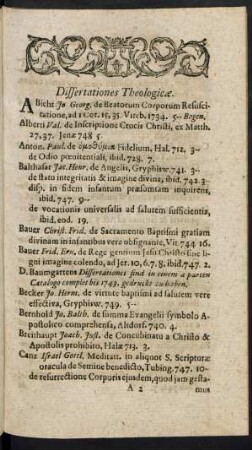 Dissertationes Theologicæ.
Abicht Jo Georg. de Beatorum Corporum Resusci-
tatione, ad 1 Cor. 15, 35. Viteb. 1734. 5-- Bogen.
Alberti Val. de Inscriptione Crucis Christi, ex Matth.
27, 37. Jenæ 748 5
Anton. Paul. de Fidelium, Hal. 712. 3--
de Odio pœnitentiali, ibid. 728. 7.
Balthasar Jac. Henr. de Angelis, Gryphisw. 741. 3--
de statu integritatis & imagine divina, ibid. 742. 3--
disp. in fidem infantum præsumtam inquirens,
ibid. 747. 9--
de vocationis universalis ad salutem sufficientia,
ibid. eod. 19.
Bauer Christ. Frid. de Sacramento Baptismi gratiam
divinam in infantibus vere obsignante, Vit. 744 16.
Bauer Frid. Ern. de Rege gentium Jesu Christo sine li-
gni imagine colendo, ad Jer. 10, 6. 7. 8. ibid. 747. 2.
D. Baumgartens Dissertationes sind in einem a parten
Catalogo complet bis 1749. gedruckt zu haben.
Becker Jo. Herm. de virtute baptismi ad salutem vere
effectiva, Gryphisw. 749. 5--
Bernhold Jo. Balth. de summa Evangelii symbolo A-
postolico comprehensa, Altdorf. 740. 4.
Breithaupt Joach. Just. de Concubinatu a Christo &
Apostolis prohibito, Halæ 713. 3.
Canz Israel Gottl. Meditatt. in aliquot S. Scripturæ
oracula de Semine benedicto, Tubing. 747. 10--
de resurrectione Corporis ejusdem, quod jam gesta-
A 2 mus